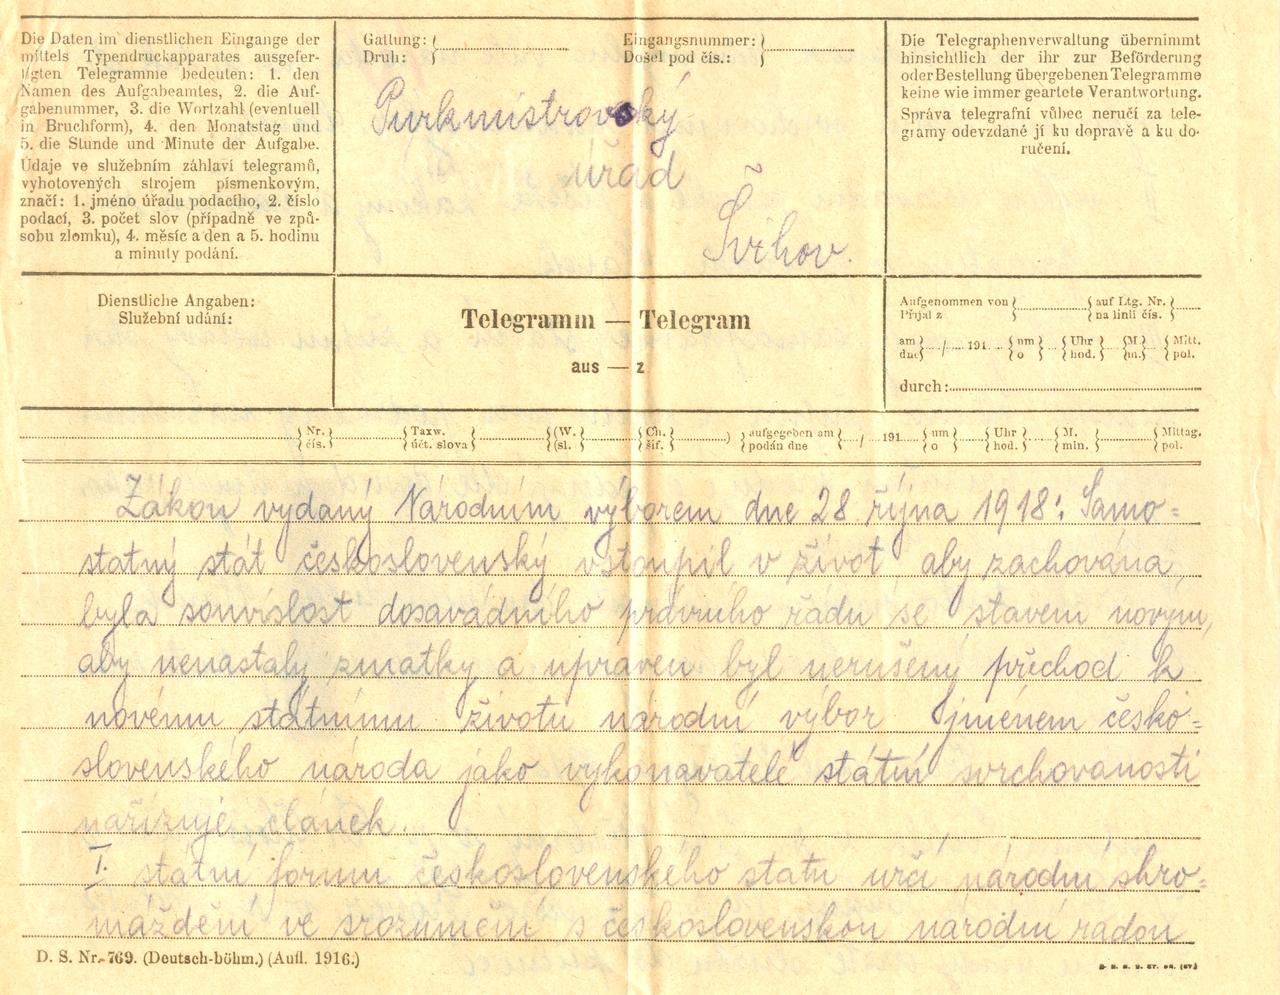 Die Daten im dienstlichen Eingange der
mittels Typendruckapparates ausgefer-
tigten Telegramme bedeuten: 1. den
Namen des Aufgabeamtes, 2. die Auf-
gabenummer, 3. die Wortzahl (eventuell
in Bruchform), 4. den Monatstag und
5. die Stunde und Minute der Aufgabe.
Údaje ve služebním záhlaví telegramů,
vyhotovených strojem písmenkovým,
značí: 1. jméno úřadu podacího, 2. číslo
podací, 3. počet slov (případně ve způ-
sobu zlomku), 4. měsíc a den a 5. hodinu
a minuty podání.
Gattung:
Druh:
Eingangsnummer:
Došel pod čís.:
Purkmistrovský
úřad
Švihov.
Die Telegraphenverwaltung übernimmt
hinsichtlich der ihr zur Beförderung
oder Bestellung übergebenen Telegramme
keine wie immer geartete Verantwortung.
Správa telegrafní vůbec neručí za tele-
gramy odevzdané jí ku dopravě a ku do-
ručení.
Dienstliche Angaben:
Služební udání:
Telegramm — Telegram
aus — z
Aufgenommen von auf Ltg. Nr.
Přijal z na linii čís.
am / 191 um Uhr M. Mitt.
dne o hod. m. pol.
durch:
Nr. Taxw. (W. Ch. ) aufgegeben am / 191 um Uhr M. Mittag.
čís. účt. slova (sl. šif. podán dne o hod. min. pol.
Zákon vydaný Národním výborem dne 28 října 1918: Samo=
statný stát československý vstoupil v život aby zachována
byla souvislost dosavádního právního řádu se stavem novým,
aby nenastaly zmatky a upraven byl nerušený přechod k
novému státnímu životu národní výbor jménem česko=
slovenského národa jako vykonavatelé státní svrchovanosti
nařizuje článek.
I. státní formu československého statu určí národní shro=
máždění ve srozumění s československou národní radou
D. S. Nr. 769. (Deutsch-böhm.) (Aufl. 1916.)